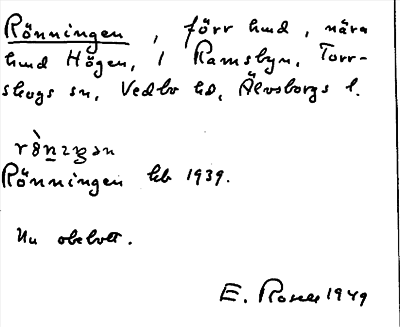 Rönningen, förr hmd, nära
hmd Högen, i Ramsbyn, Torr-
skogs sn, Vedbo hd, Älvsborgs l.
Rönningen kb 1939.
Nu obebott.
E. Rosell 1949